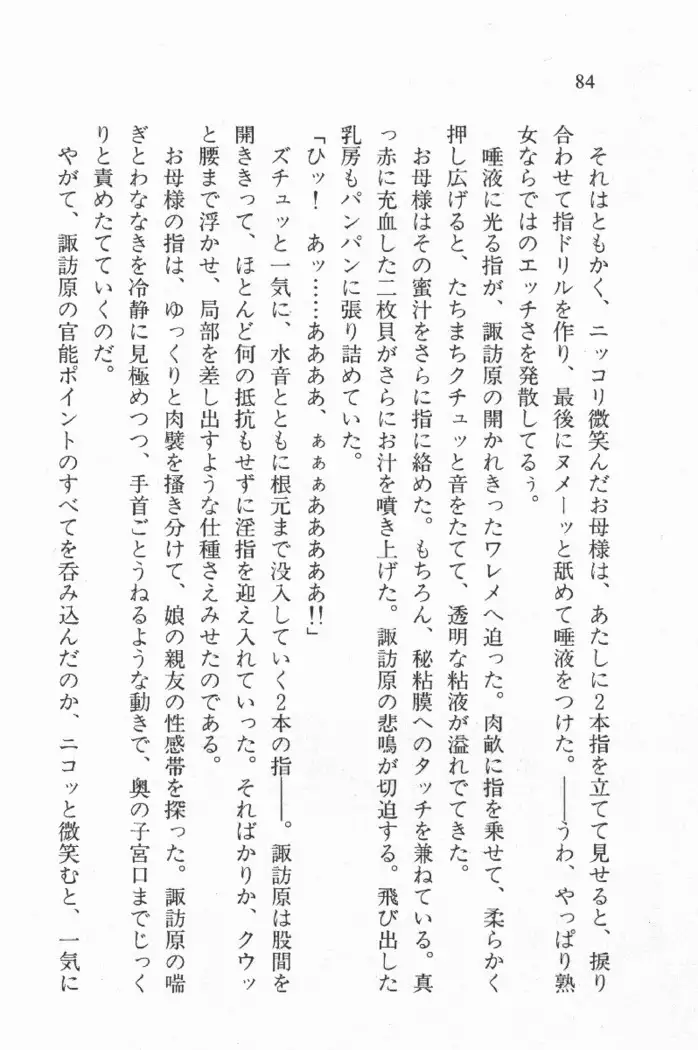 84
それはともかく、ニッコリ微笑んだお母様は、あたしに2本指を立てて見せると、捩り
合わせて指ドリルを作り、最後にヌメーッと舐めて唾液をつけた。――うわ、やっぱり熟
女ならではのエッチさを発散してるぅ。
唾液に光る指が、諏訪原の開かれきったワレメへ迫った。肉畝に指を乗せて、柔らかく
押し広げると、たちまちクチュッと音をたてて、透明な粘液が溢れでてきた。
お母様はその蜜汁をさらに指に絡めた。もちろん、秘粘膜へのタッチを兼ねている。真
っ赤に充血した二枚貝がさらにお汁を噴き上げた。諏訪原の悲鳴が切迫する。飛び出した
乳房もパンパンに張り詰めていた。
「ひッ！　あッ……ああああ、ぁぁぁあああああ!!」
ズチュッと一気に、水音とともに根元まで没入していく2本の指――。諏訪原は股間を
開ききって、ほとんど何の抵抗もせずに淫指を迎え入れていった。そればかりか、クウッ
と腰まで浮かせ、局部を差し出すような仕種さえみせたのである。
お母様の指は、ゆっくりと肉襞を掻き分けて、娘の親友の性感帯を探った。諏訪原の喘
ぎとわななきを冷静に見極めつつ、手首ごとうねるような動きで、奥の子宮口までじっく
りと責めたてていくのだ。
やがて、諏訪原の官能ポイントのすべてを呑み込んだのか、ニコッと微笑むと、一気に